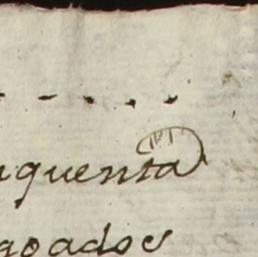 nquenta
goados